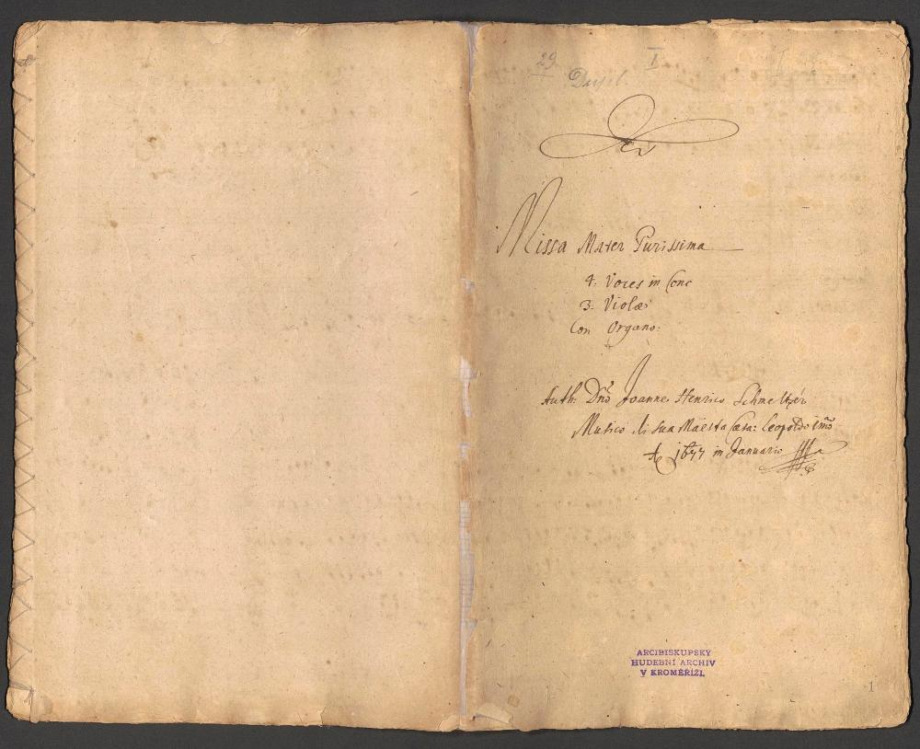 29 I
Missa Mater Purissima
4. Voces in Conc
3. Violæ
Con Organo.
Auth: Dño Joanne Henrico Schmeltzer
Musico di sua Maesta Cæsa: Leopoldo imo
A 1677 in Januario
ARCIBISKUPSKÝ
HUDEBNÍ ARCHIV
V KROMĚŘÍŽI.
1